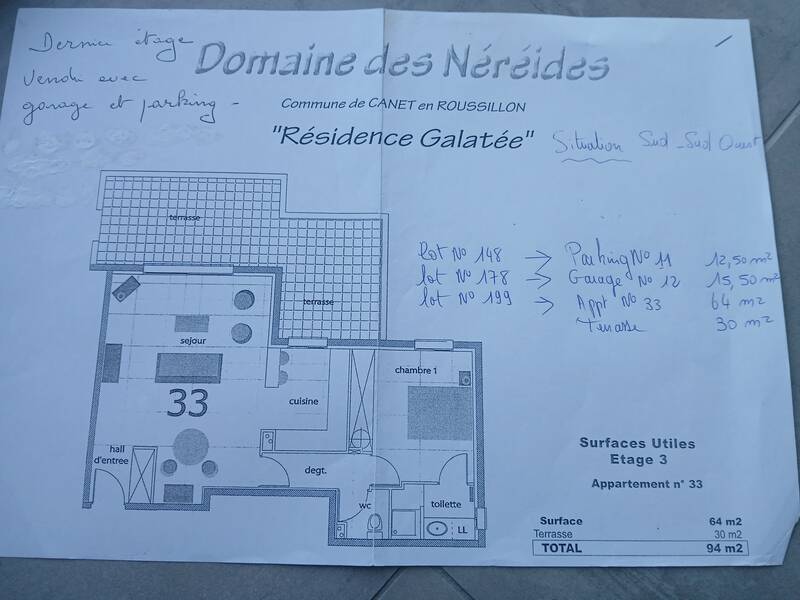 Dernier étage
Vendu avec
garage et parking -
Domaine des Néréides
Commune de CANET en ROUSSILLON
"Résidence Galatée"
Situation Sud - Sud Ouest
lot N° 148 → Parking N° 11 12,50 m²
lot N° 178 → Garage N° 12 15,50 m²
lot N° 199 → Appt N° 33 64 m²
Terrasse 30 m²
terrasse
terrasse
sejour
chambre 1
33
cuisine
hall
d'entree
degt.
wc
toilette
LL
Surfaces Utiles
Etage 3
Appartement n° 33
Surface 64 m2
Terrasse 30 m2
TOTAL 94 m2